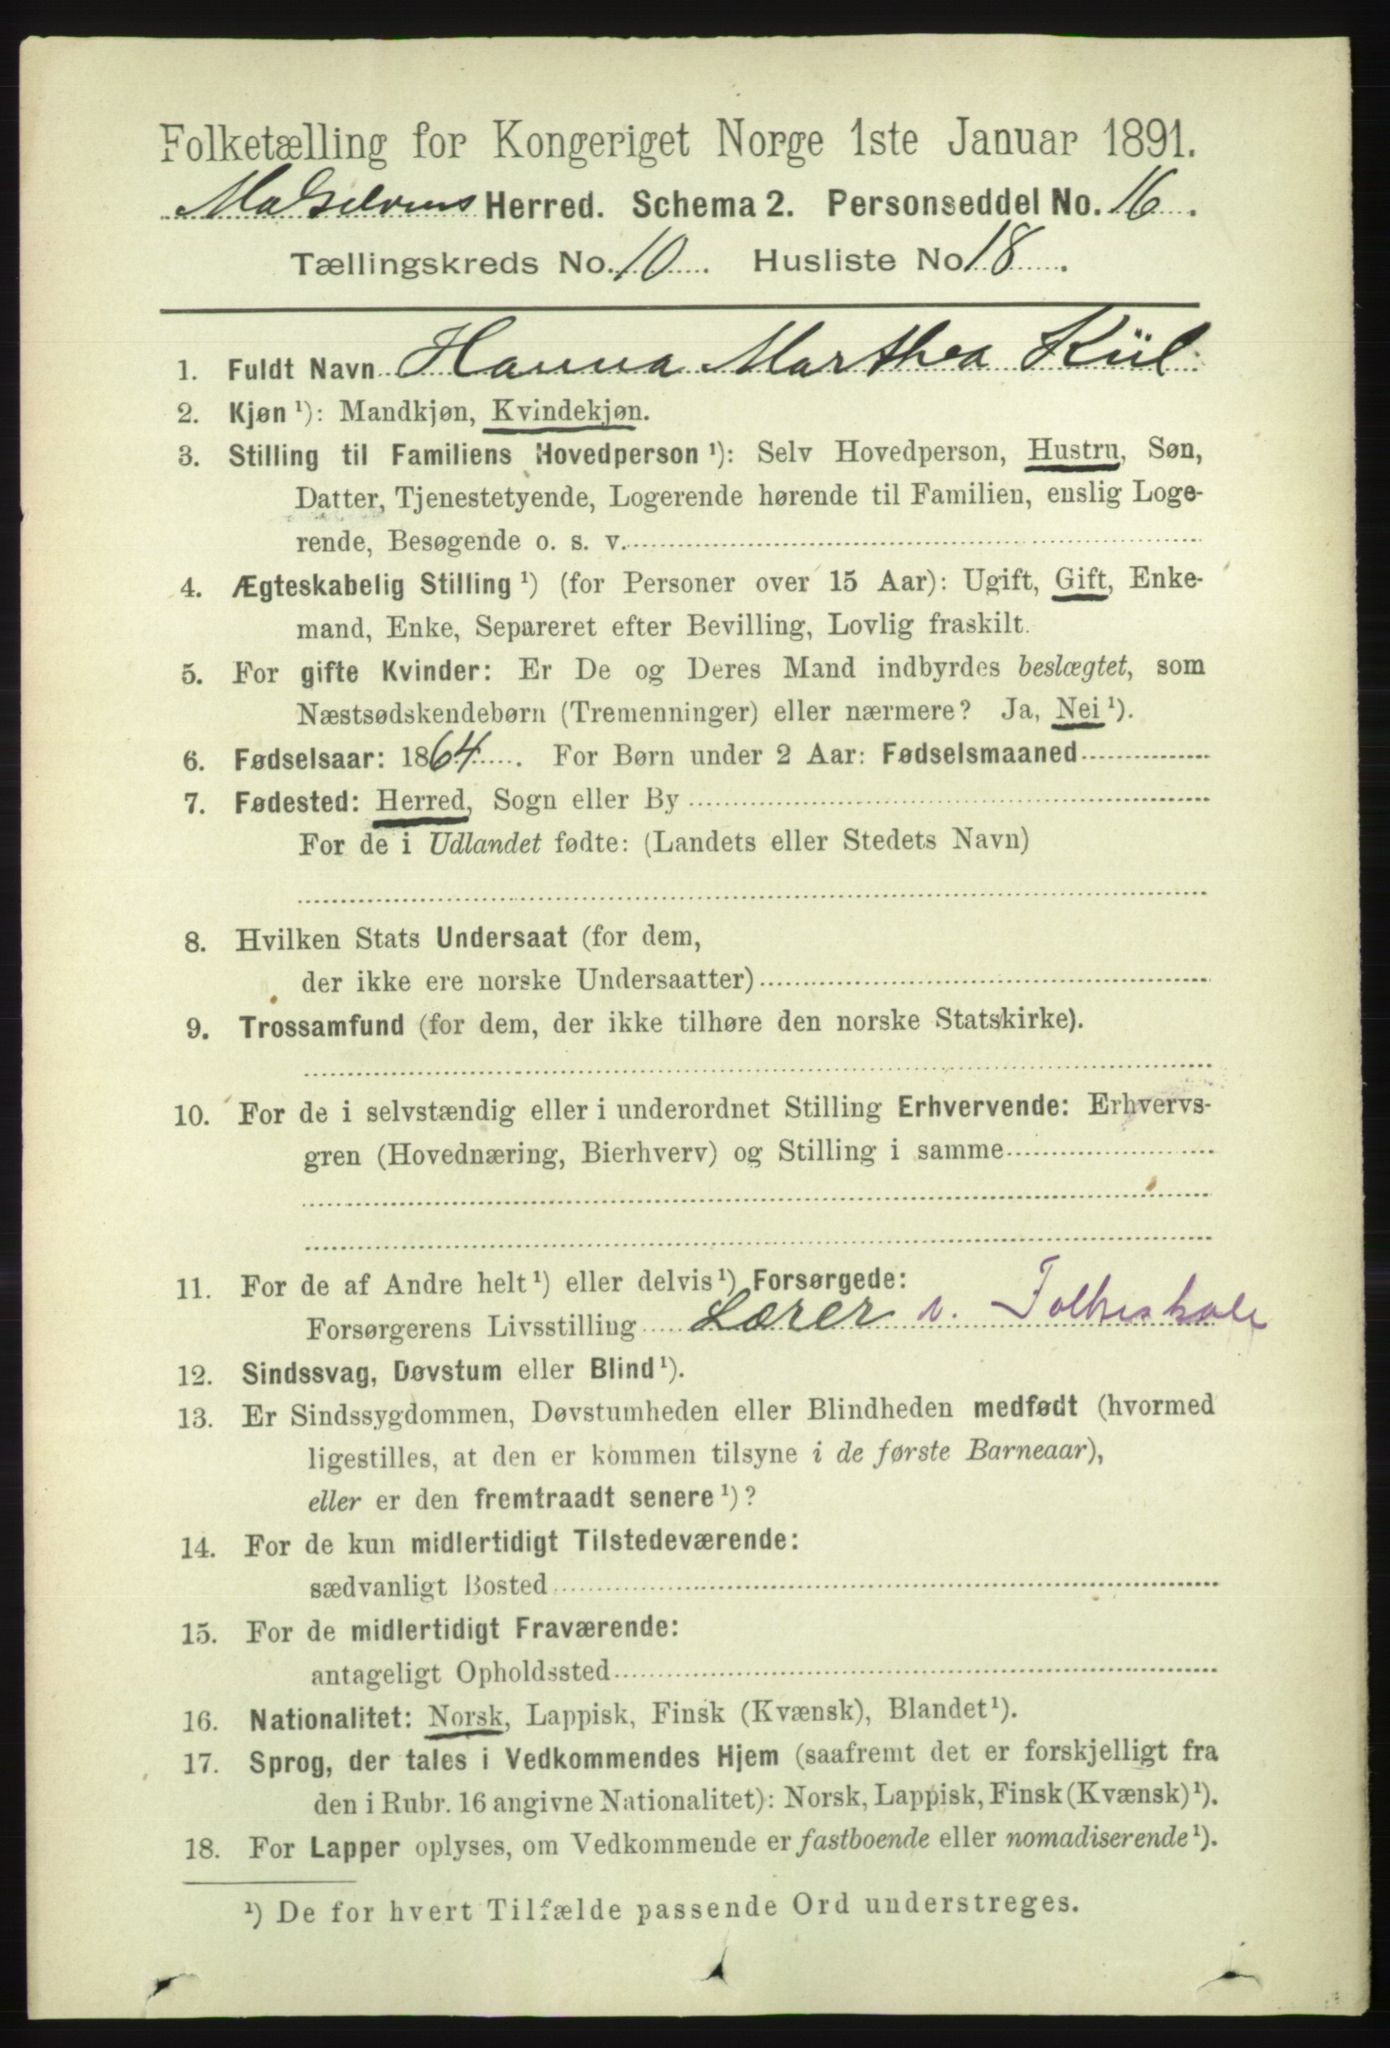 Folketælling for Kongeriget Norge 1ste Januar 1891.
Maalselvens Herred. Schema 2. Personseddel No. 16.
Tællingskreds No. 10. Husliste No 18.
1. Fuldt Navn Hanna Marthea Kiil
2. Kjøn ¹): Mandkjøn, Kvindekjøn.
3. Stilling til Familiens Hovedperson ¹): Selv Hovedperson, Hustru, Søn,
Datter, Tjenestetyende, Logerende hørende til Familien, enslig Loge-
rende, Besøgende o. s. v.
4. Ægteskabelig Stilling ¹) (for Personer over 15 Aar): Ugift, Gift, Enke-
mand, Enke, Separeret efter Bevilling, Lovlig fraskilt.
5. For gifte Kvinder: Er De og Deres Mand indbyrdes beslægtet, som
Næstsødskendebørn (Tremenninger) eller nærmere? Ja, Nei ¹).
6. Fødselsaar: 1864. For Børn under 2 Aar: Fødselsmaaned
7. Fødested: Herred, Sogn eller By
For de i Udlandet fødte: (Landets eller Stedets Navn)
8. Hvilken Stats Undersaat (for dem,
der ikke ere norske Undersaatter)
9. Trossamfund (for dem, der ikke tilhøre den norske Statskirke).
10. For de i selvstændig eller i underordnet Stilling Erhvervende: Erhvervs-
gren (Hovednæring, Bierhverv) og Stilling i samme
11. For de af Andre helt ¹) eller delvis ¹) Forsørgede:
Forsørgerens Livsstilling Lærer v. Folkeskole
12. Sindssvag, Døvstum eller Blind ¹).
13. Er Sindssygdommen, Døvstumheden eller Blindheden medfødt (hvormed
ligestilles, at den er kommen tilsyne i de første Barneaar),
eller er den fremtraadt senere ¹)?
14. For de kun midlertidigt Tilstedeværende:
sædvanligt Bosted
15. For de midlertidigt Fraværende:
antageligt Opholdssted
16. Nationalitet: Norsk, Lappisk, Finsk (Kvænsk), Blandet ¹).
17. Sprog, der tales i Vedkommendes Hjem (saafremt det er forskjelligt fra
den i Rubr. 16 angivne Nationalitet): Norsk, Lappisk, Finsk (Kvænsk) ¹).
18. For Lapper oplyses, om Vedkommende er fastboende eller nomadiserende ¹).
¹) De for hvert Tilfælde passende Ord understreges.